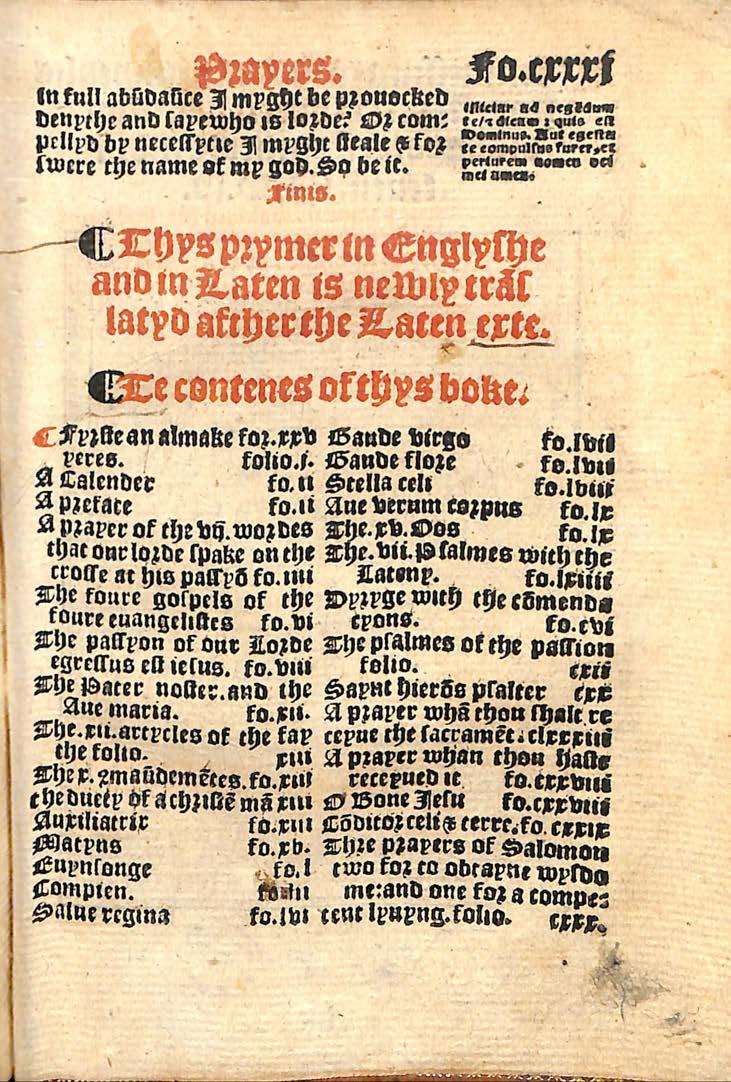 Prayers.
Fo.cxxxi
In full abūdaūce I myght be prouocked
denythe and sayewho is lorde? Or com:
pellyd by necessytie I myght steale & for
swere the name of my god. So be it.
Finis.
illiciar ad negādum
et dicam: quis est
Dominus. Aut egesta
te compulsus furer, et
periurem nomen dei
mei amen.
Thys prymer in Englyshe
and in Laten is newly trās
latyd afther the Laten exte.
Te contenes of thys boke.
Fyrste an almake for.xxv
yeres. folio.i.
A Calender fo.ii
A preface fo.ii
A prayer of the vij. wordes
that our lorde spake on the
crosse at his passyō fo.iiii
The foure gospels of the
foure euangelistes fo.vi
The passyon of our Lorde
egressus est iesus. fo.viii
The Pater noster.and the
Aue maria. fo.xii.
The.xii.artycles of the fay
the folio. xiii
The x. ꝯmaūdemētes.fo.xiii
the duety of a christē mā xiii
Auxiliatrix fo.xiii
Matyns fo.xv.
Euynsonge fo.l
Complen.
Salue regina fo.lvi
Gaude virgo fo.lvii
Gaude flore fo.lvii
Stella celi fo.lviii
Aue verum corpus fo.lx
The.xv.Oos fo.lx
The.vii.Psalmes with the
Latony. fo.lxiiii
Dyryge with the cōmenda
cyons. fo.cvi
The psalmes of the passion
folio. cxii
Saynt hierōs psalter cxx
A prayer whā thou shalt re
ceyue the sacramēt. clxxxiii
A prayer whan thou haste
receyued it fo.cxxviii
O Bone Jesu fo.cxxviii
Cōditor celi & terre.fo.cxxix
Thre prayers of Salomon
two for to obtayne wysdo
me:and one for a compe:
tent lyuyng.folio. cxxx.